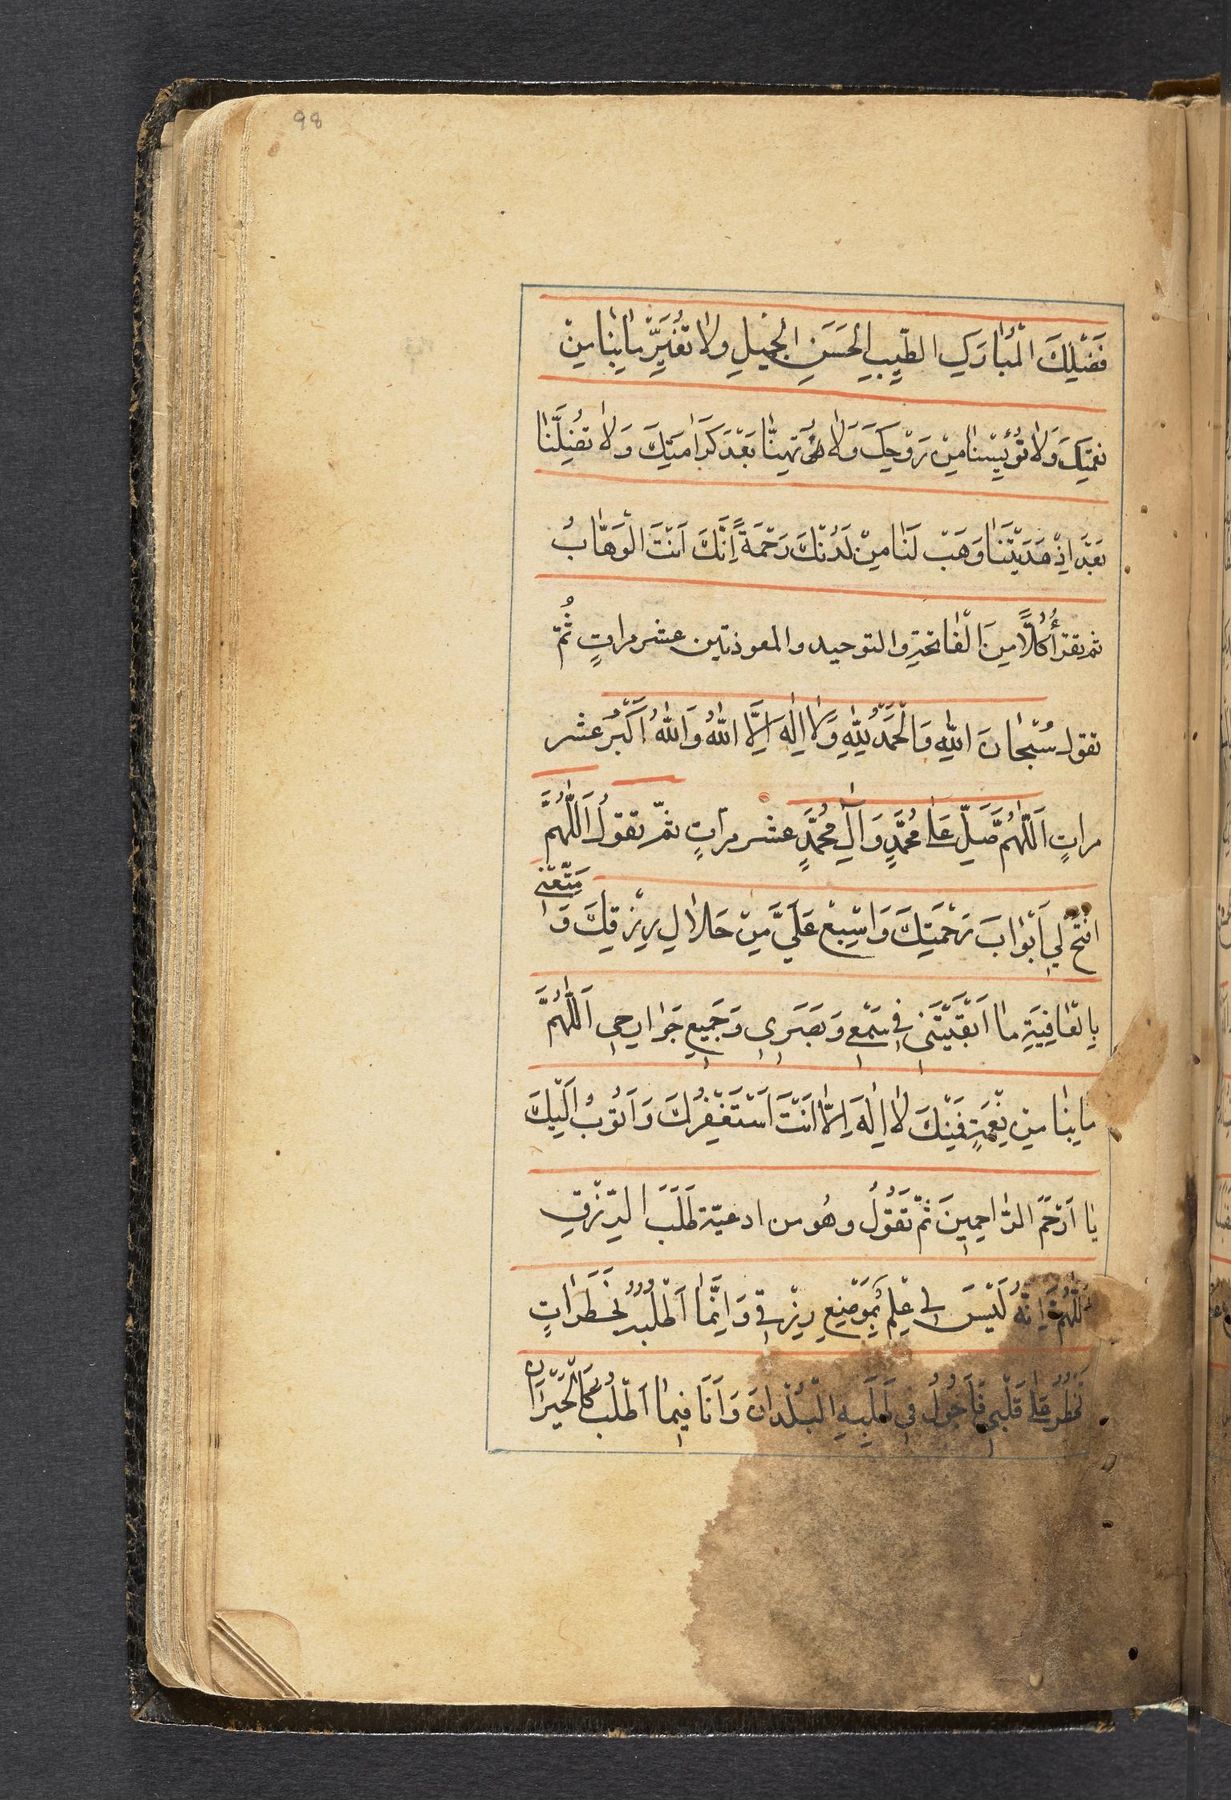 98
فَضْلِكَ الْمُبَارَكِ الطَّيِّبِ الْحَسَنِ الْجَمِيلِ وَلَا تُغَيِّرْ مَا بِنَا مِنْ
نِعَمِكَ وَلَا تُؤْيِسْنَا مِنْ رَوْحِكَ وَلَا تُهِنَّا بَعْدَ كَرَامَتِكَ وَلَا تُضِلَّنَا
بَعْدَ اِذْ هَدَيْتَنَا وَهَبْ لَنَا مِنْ لَدُنْكَ رَحْمَةً اِنَّكَ اَنْتَ الْوَهَّابُ
ثم تقرأُ كُلًّا مِنَ الْفَاتحةِ والتوحيد والمعوذتين عشر مراتٍ ثُمَّ
تقول سُبْحَانَ اللهِ وَالْحَمْدُ لِلّٰهِ وَلَا اِلٰهَ اِلَّا اللهُ وَاللهُ اَكْبَرُ عشر
مراتٍ اَللّٰهُمَّ صَلِّ عَلَى مُحَمَّدٍ وَآلِ مُحَمَّدٍ عشر مرّاتٍ ثمّ تقولُ اَللّٰهُمَّ
افْتَحْ لِي اَبْوَابَ رَحْمَتِكَ وَاَسْبِغْ عَلَيَّ مِنْ حَلَالِ رِزْقِكَ وَ مَتِّعْنِي
بِالْعَافِيَةِ مَا اَبْقَيْتَنِي فِي سَمْعِي وَبَصَرِي وَجَمِيعِ جَوَارِحِي اَللّٰهُمَّ
مَا بِنَا مِنْ نِعْمَةٍ فَمِنْكَ لَا اِلٰهَ اِلَّا اَنْتَ اَسْتَغْفِرُكَ وَاَتُوبُ اِلَيْكَ
يَا اَرْحَمَ الرَّاحِمِينَ ثمّ تَقُولُ وهُو من ادعيّة طَلَبَ الرِّزْقِ
اَللّٰهُمَّ اِنَّهُ لَيْسَ لِي عِلْمٌ بِمَوْضِعِ رِزْقِي وَاِنَّمَا اَطْلُبُهُ بِخَطَرَاتٍ
تَخْطُرُ عَلَى قَلْبِي فَاَجُولُ فِي طَلَبِهِ الْبُلْدَانَ وَاَنَا فِيمَا اَطْلُبُ كَالْحَيْرَانِ